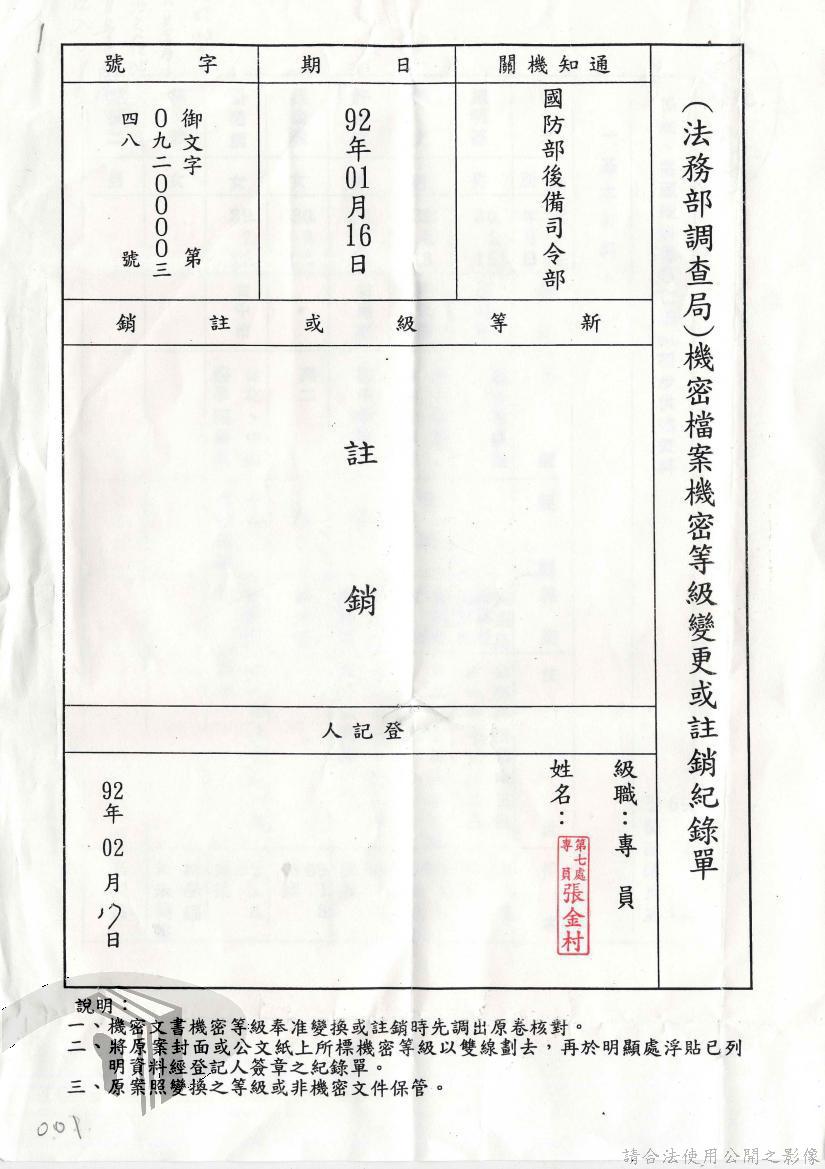 (法務部調查局)機密檔案機密等級變更或註銷紀錄單
通知機關
國防部後備司令部
日期
92年01月16日
字號
御文字第
0九二0000三
四八號
新等級或註銷
註銷
登記人
級職：專員
姓名：
第七處
專員
張金村
92年02月17日
說明：
一、機密文書機密等級奉准變換或註銷時先調出原卷核對。
二、將原案封面或公文紙上所標機密等級以雙線劃去，再於明顯處浮貼已列
明資料經登記人簽章之紀錄單。
三、原案照變換之等級或非機密文件保管。
001
1
請合法使用公開之影像